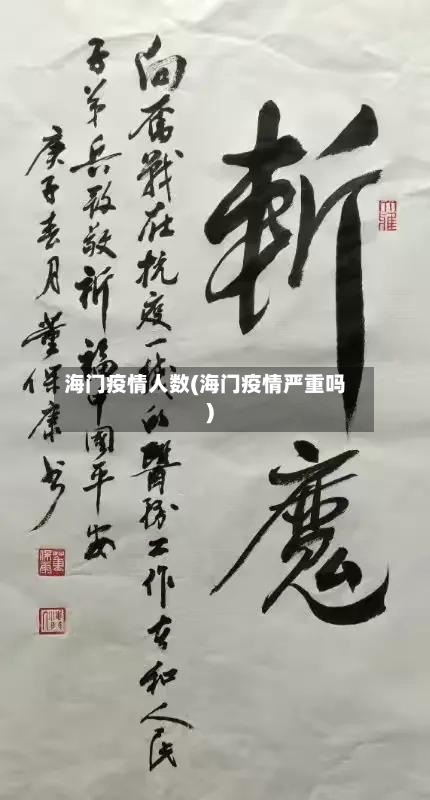 斬魔
向奮戰在抗疫一线的醫務工作者和人民
子弟兵致敬祈福中國平安
庚子春月董保康书
海门疫情人数(海门疫情严重吗
)